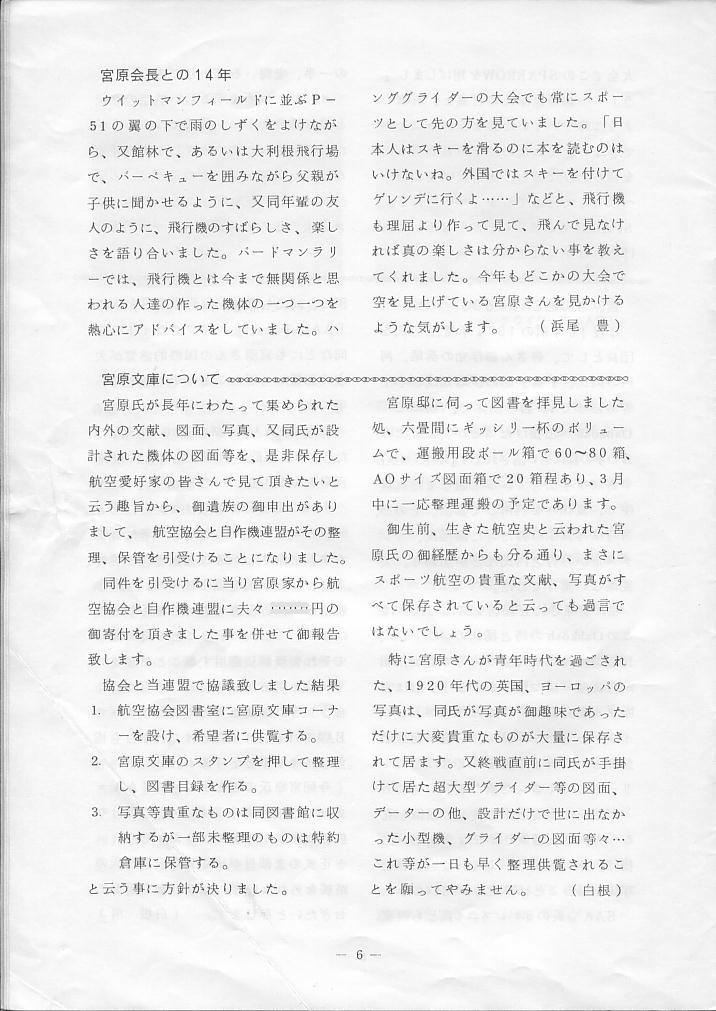 宮原会長との14年
ウイットマンフィールドに並ぶP－
51の翼の下で雨のしずくをよけなが
ら、又館林で、あるいは大利根飛行場
で、バーベキューを囲みながら父親が
子供に聞かせるように、又同年輩の友
人のように、飛行機のすばらしさ、楽し
さを語り合いました。バードマンラリ
ーでは、飛行機とは今まで無関係と思
われる人達の作った機体の一つ一つを
熱心にアドバイスをしていました。ハ
ンググライダーの大会でも常にスポー
ツとして先の方を見ていました。「日
本人はスキーを滑るのに本を読むのは
いけないね。外国ではスキーを付けて
ゲレンデに行くよ……」などと、飛行機
も理屈より作って見て、飛んで見なけ
れば真の楽しさは分からない事を教え
てくれました。今年もどこかの大会で
空を見上げている宮原さんを見かける
ような気がします。　（浜尾　豊）
宮原文庫について
宮原氏が長年にわたって集められた
内外の文献、図面、写真、又同氏が設
計された機体の図面等を、是非保存し
航空愛好家の皆さんで見て頂きたいと
云う趣旨から、御遺族の御申出があり
まして、航空協会と自作機連盟がその整
理、保管を引受けることになりました。
同件を引受けるに当り宮原家から航
空協会と自作機連盟に夫々……円の
御寄付を頂きました事を併せて御報告
致します。
協会と当連盟で協議致しました結果
1.　航空協会図書室に宮原文庫コーナ
ーを設け、希望者に供覧する。
2.　宮原文庫のスタンプを押して整理
し、図書目録を作る。
3.　写真等貴重なものは同図書館に収
納するが一部未整理のものは特約
倉庫に保管する。
と云う事に方針が決りました。
宮原邸に伺って図書を拝見しました
処、六畳間にギッシリ一杯のボリュー
ムで、運搬用段ボール箱で60～80箱、
AOサイズ図面箱で20箱程あり、3月
中に一応整理運搬の予定であります。
御生前、生きた航空史と云われた宮
原氏の御経歴からも分る通り、まさに
スポーツ航空の貴重な文献、写真がす
べて保存されていると云っても過言で
はないでしょう。
特に宮原さんが青年時代を過ごされ
た、1920年代の英国、ヨーロッパの
写真は、同氏が写真が御趣味であった
だけに大変貴重なものが大量に保存さ
れて居ます。又終戦直前に同氏が手掛
けて居た超大型グライダー等の図面、
データーの他、設計だけで世に出なか
った小型機、グライダーの図面等々…
これ等が一日も早く整理供覧されるこ
とを願ってやみません。　（白根）
― 6 ―